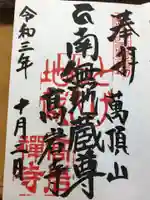 奉拝
萬頂山
南無地蔵尊
高岩寺
令和三年
十月二日